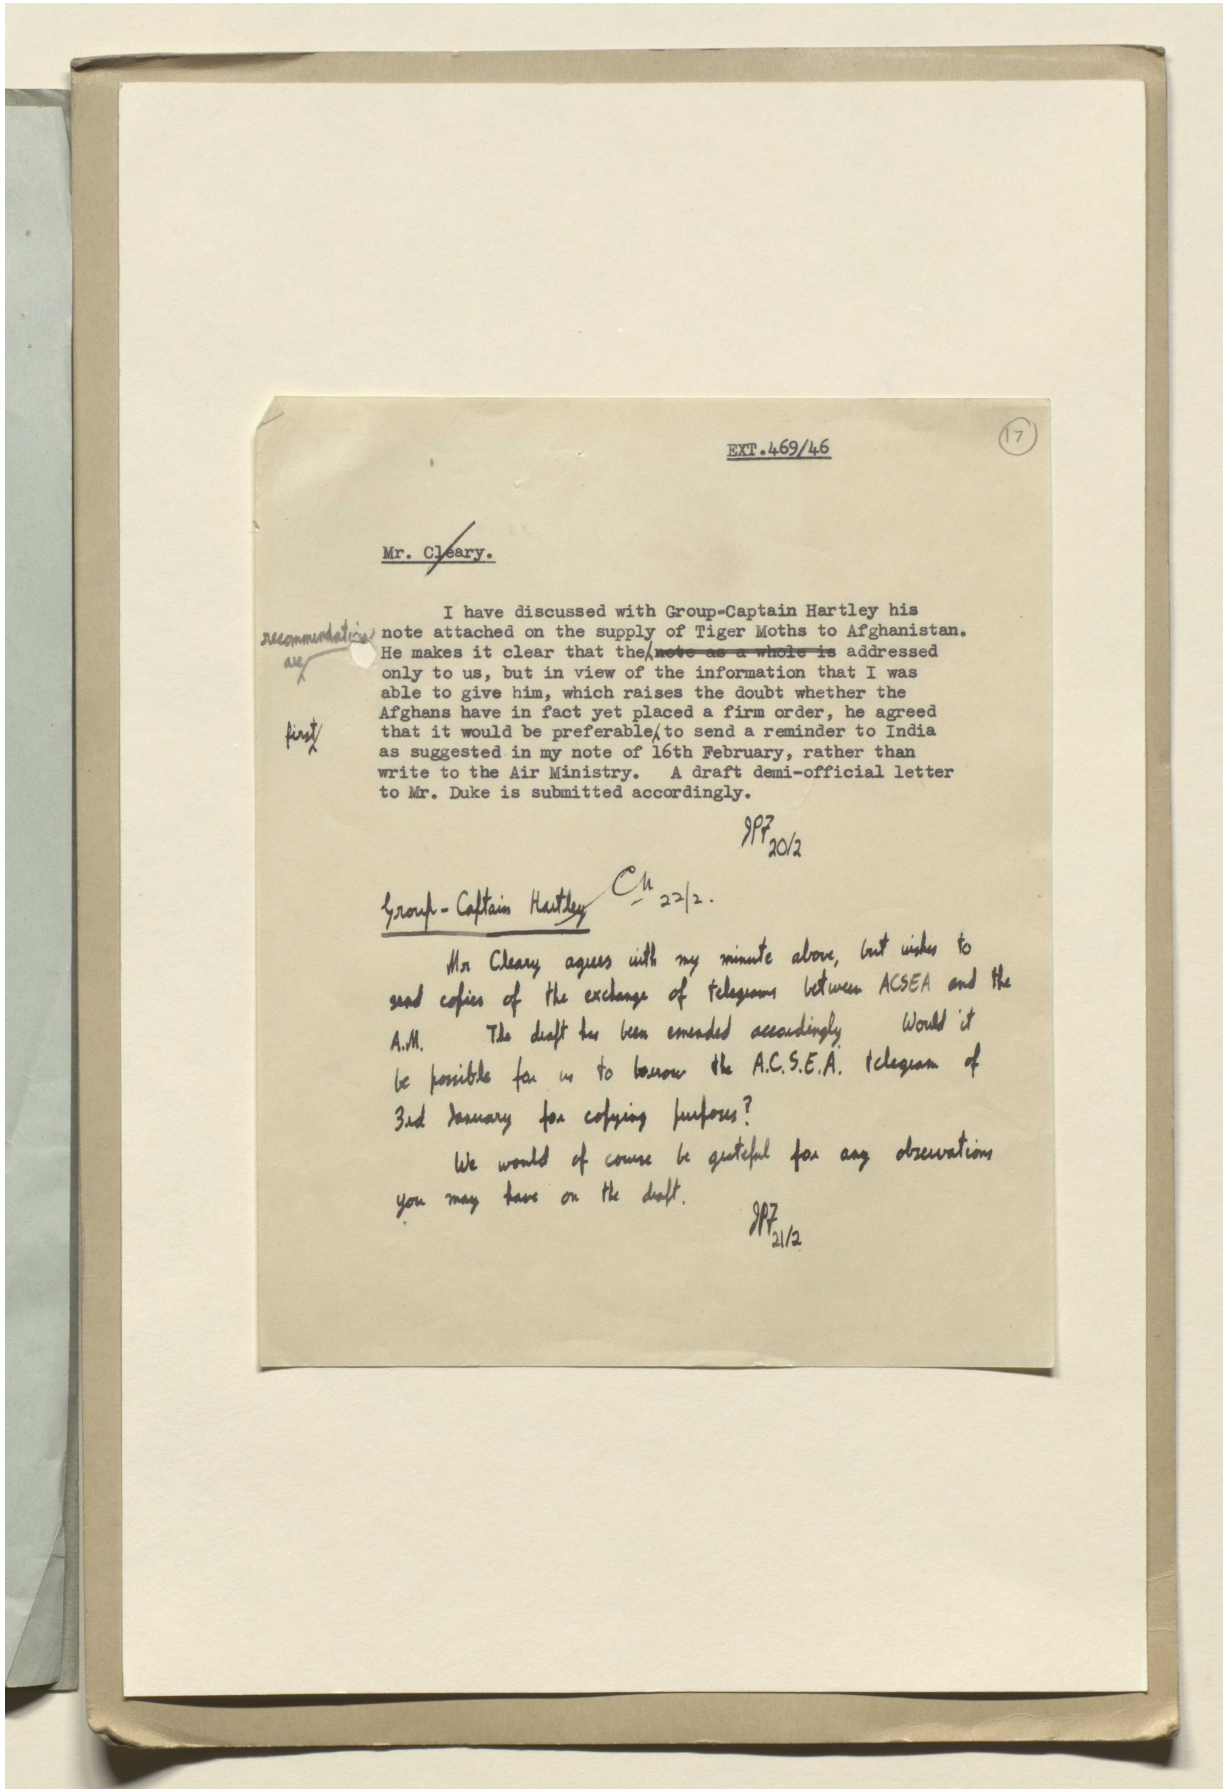 EXT.469/46
17
Mr. Cleary.
I have discussed with Group-Captain Hartley his
note attached on the supply of Tiger Moths to Afghanistan.
recommendations
He makes it clear that the note as a whole is addressed
are
only to us, but in view of the information that I was
able to give him, which raises the doubt whether the
Afghans have in fact yet placed a firm order, he agreed
first
that it would be preferable to send a reminder to India
as suggested in my note of 16th February, rather than
write to the Air Ministry. A draft demi-official letter
to Mr. Duke is submitted accordingly.
20/2
Group-Captain Hartley
22/2.
Mr Cleary agrees with my minute above, but wishes to
send copies of the exchange of telegrams between ACSEA and the
A.M. The draft has been emended accordingly Would it
be possible for us to borrow the A.C.S.E.A. telegram of
3rd January for copying purposes?
We would of course be grateful for any observations
you may have on the draft.
21/2